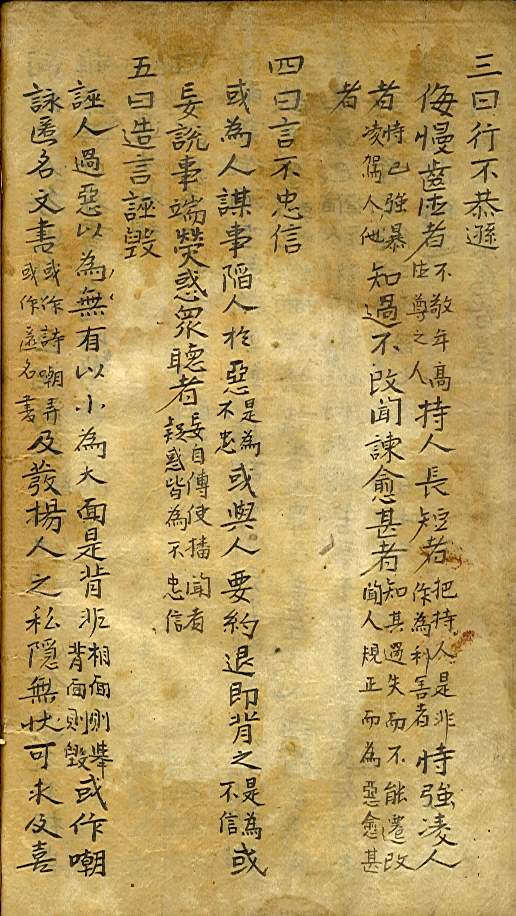 三曰行不恭遜
侮慢齒德者不敬年高德尊之人持人長短者把持人是非作為利害者恃強凌人
者恃己強暴凌駕人他知過不改聞諫愈甚者知其過失而不能遷改聞人規正而為惡愈甚
者
四曰言不忠信
或為人謀事陷人於惡是為不忠或與人要約退即背之是為不信或
妄說事端熒惑眾聽者妄自傳使播聞者疑惑皆為不忠信
五曰造言誣毀
誣人過惡以為無有以小為大面是背非相面則舉背面則毀或作嘲
詠匿名文書或作詩嘲弄或作匿名書及發揚人之私隱無狀可求及喜